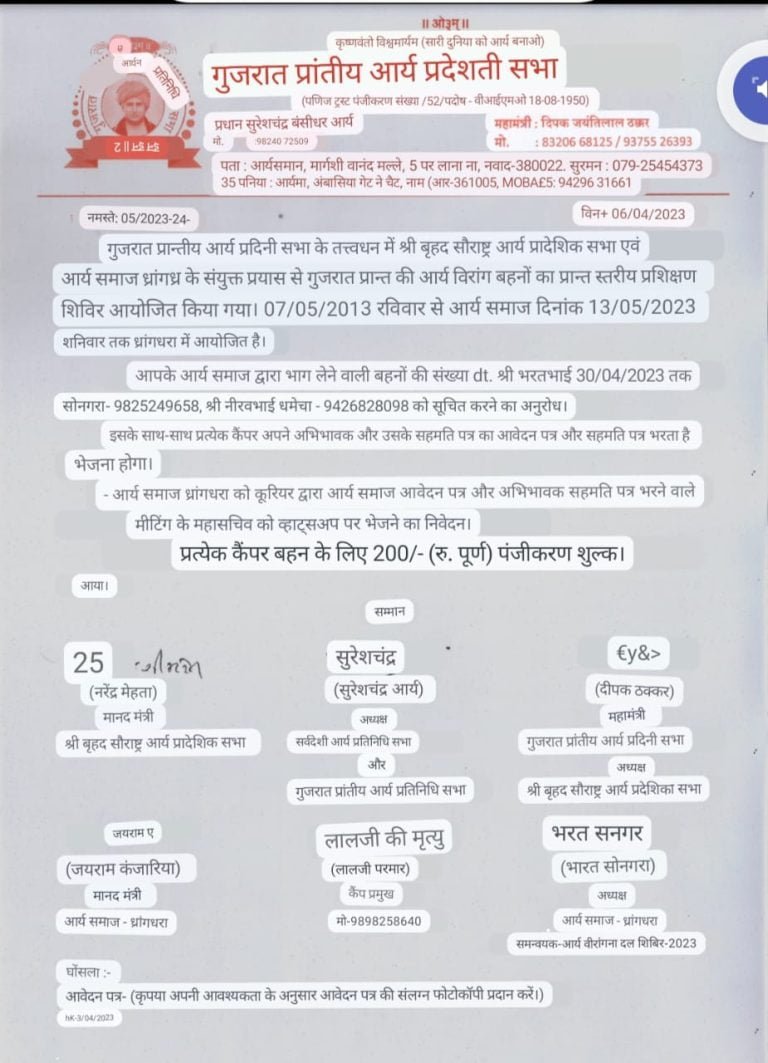 ॥ ओ३म् ॥
कृष्णवंतो विश्वमार्यम (सारी दुनिया को आर्य बनाओ)
गुजरात प्रांतीय आर्य प्रदेशती सभा
(पणिज ट्रस्ट पंजीकरण संख्या /52/पदोष - वीआईएमओ 18-08-1950)
अार्थन
प्रतिनिधि
गुजरात
सभा
प्रधान सुरेशचंद्र बंसीधर आर्य
मो. :98240 72509
महामंत्री : दिपक जयंतिलाल ठक्कर
मो. : 83206 68125 / 93755 26393
पता : आर्यसमान, मार्गशी वानंद मल्ले, 5 पर लाना ना, नवाद-380022. सुरमन : 079-25454373
35 पनिया : आर्यमा, अंबासिया गेट ने चैट, नाम (आर-361005, MOBA£5: 94296 31661
नमस्ते: 05/2023-24-
विन+ 06/04/2023
गुजरात प्रान्तीय आर्य प्रदिनी सभा के तत्त्वधन में श्री बृहद सौराष्ट्र आर्य प्रादेशिक सभा एवं
आर्य समाज ध्रांगध्र के संयुक्त प्रयास से गुजरात प्रान्त की आर्य विरांग बहनों का प्रान्त स्तरीय प्रशिक्षण
शिविर आयोजित किया गया। 07/05/2013 रविवार से आर्य समाज दिनांक 13/05/2023
शनिवार तक ध्रांगधरा में आयोजित है।
आपके आर्य समाज द्वारा भाग लेने वाली बहनों की संख्या dt. श्री भरतभाई 30/04/2023 तक
सोनगरा- 9825249658, श्री नीरवभाई धमेचा - 9426828098 को सूचित करने का अनुरोध।
इसके साथ-साथ प्रत्येक कैंपर अपने अभिभावक और उसके सहमति पत्र का आवेदन पत्र और सहमति पत्र भरता है
भेजना होगा।
- आर्य समाज ध्रांगधरा को कूरियर द्वारा आर्य समाज आवेदन पत्र और अभिभावक सहमति पत्र भरने वाले
मीटिंग के महासचिव को व्हाट्सअप पर भेजने का निवेदन।
प्रत्येक कैंपर बहन के लिए 200/- (रु. पूर्ण) पंजीकरण शुल्क।
आया।
सम्मान
25
(नरेंद्र मेहता)
मानद मंत्री
श्री बृहद सौराष्ट्र आर्य प्रादेशिक सभा
सुरेशचंद्र
(सुरेशचंद्र आर्य)
अध्यक्ष
सर्वदेशी आर्य प्रतिनिधि सभा
और
गुजरात प्रांतीय आर्य प्रतिनिधि सभा
€y&>
(दीपक ठक्कर)
महामंत्री
गुजरात प्रांतीय आर्य प्रदिनी सभा
अध्यक्ष
श्री बृहद सौराष्ट्र आर्य प्रदेशिका सभा
जयराम ए
(जयराम कंजारिया)
मानद मंत्री
आर्य समाज - ध्रांगधरा
लालजी की मृत्यु
(लालजी परमार)
कैंप प्रमुख
मो-9898258640
भरत सनगर
(भारत सोनगरा)
अध्यक्ष
आर्य समाज - ध्रांगधरा
समन्वयक-आर्य वीरांगना दल शिबिर-2023
घोंसला :-
आवेदन पत्र- (कृपया अपनी आवश्यकता के अनुसार आवेदन पत्र की संलग्न फोटोकॉपी प्रदान करें।)
hK-3/04/2023